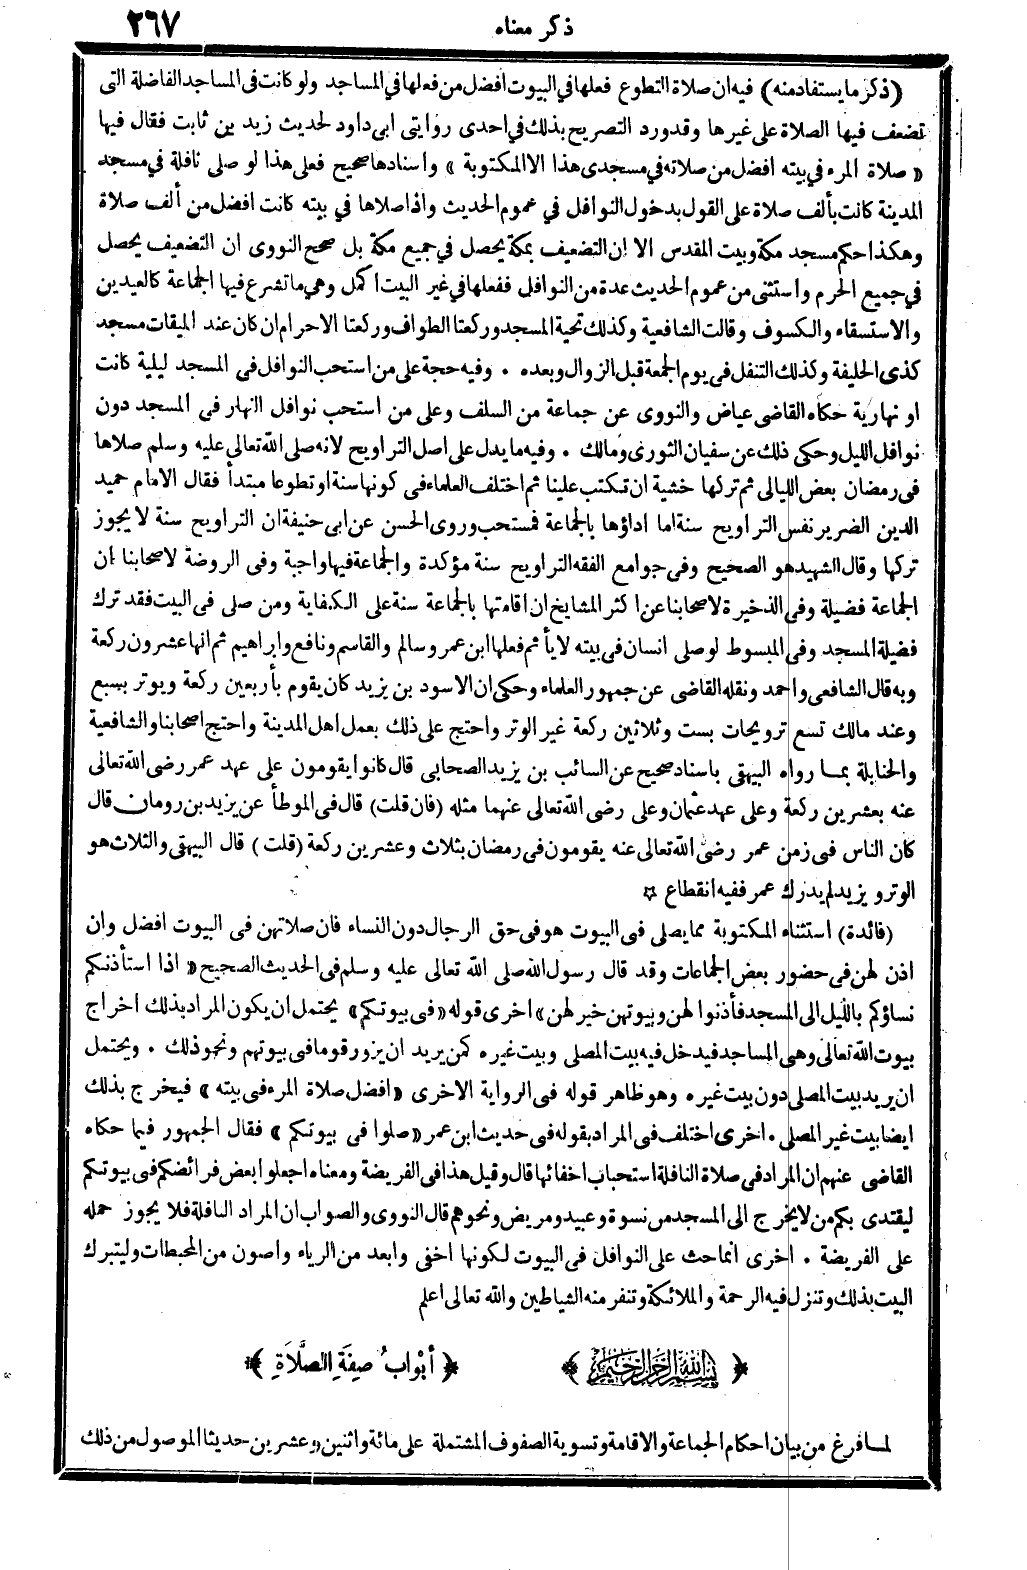 ذكر معناه ٢٦٧
(ذكر ما يستفاد منه) فيه ان صلاة التطوع فعلها في البيوت افضل من فعلها في المساجد ولو كانت في المساجد الفاضلة التى
تضعف فيها الصلاة على غيرها وقد ورد التصريح بذلك في احدى روايتى ابى داود لحديث زيد بن ثابت فقال فيها
« صلاة المرء في بيته افضل من صلاته في مسجدى هذا الا المكتوبة » واسنادها صحيح فعلى هذا لو صلى نافلة في مسجد
المدينة كانت بألف صلاة على القول بدخول النوافل في عموم الحديث واذا صلاها في بيته كانت افضل من ألف صلاة
وهكذا حكم مسجد مكة وبيت المقدس الا ان التضعيف بمكة يحصل في جميع مكة بل صحح النووى ان التضعيف يحصل
في جميع الحرم واستثنى من عموم الحديث عدة من النوافل ففعلها في غير البيت اكمل وهي ما تشرع فيها الجماعة كالعيدين
والاستسقاء والكسوف وقالت الشافعية وكذلك تحية المسجد وركعتا الطواف وركعتا الاحرام ان كان عند الميقات مسجد
كذى الحليفة وكذلك التنفل فى يوم الجمعة قبل الزوال وبعده . وفيه حجة على من استحب النوافل فى المسجد ليلية كانت
او نهارية حكاه القاضى عياض والنووى عن جماعة من السلف وعلى من استحب نوافل النهار فى المسجد دون
نوافل الليل وحكى ذلك عن سفيان الثورى ومالك . وفيه ما يدل على اصل التراويح لانه صلى الله تعالى عليه وسلم صلاها
فى رمضان بعض الليالى ثم تركها خشية ان تكتب علينا ثم اختلف العلماء فى كونها سنة او تطوعا مبتدأ فقال الامام حميد
الدين الضرير نفس التراويح سنة اما اداؤها بالجماعة فمستحب وروى الحسن عن ابى حنيفة ان التراويح سنة لا يجوز
تركها وقال الشهيد هو الصحيح وفى جوامع الفقه التراويح سنة مؤكدة والجماعة فيها واجبة وفى الروضة لاصحابنا ان
الجماعة فضيلة وفى الذخيرة لاصحابنا عن اكثر المشايخ ان اقامتها بالجماعة سنة على الكفاية ومن صلى فى البيت فقد ترك
فضيلة المسجد وفى المبسوط لو صلى انسان فى بيته لا يأثم فعلها ابن عمر وسالم والقاسم ونافع وابراهيم ثم انها عشرون ركعة
وبه قال الشافعى واحمد ونقله القاضى عن جمهور العلماء وحكى ان الاسود بن يزيد كان يقوم بأربعين ركعة ويوتر بسبع
وعند مالك تسع ترويحات بست وثلاثين ركعة غير الوتر واحتج على ذلك بعمل اهل المدينة واحتج اصحابنا والشافعية
والحنابلة بما رواه البيهقى باسناد صحيح عن السائب بن يزيد الصحابى قال كانوا يقومون على عهد عمر رضى الله تعالى
عنه بعشرين ركعة وعلى عهد عثمان وعلى رضى الله تعالى عنهما مثله (فان قلت) قال فى الموطأ عن يزيد بن رومان قال
كان الناس فى زمن عمر رضى الله تعالى عنه يقومون فى رمضان بثلاث وعشرين ركعة (قلت) قال البيهقى والثلاث هو
الوتر ويزيد لم يدرك عمر ففيه انقطاع ¤
(فائدة) استثناء المكتوبة مما يصلى فى البيوت هو فى حق الرجال دون النساء فان صلاتهن فى البيوت افضل وان
اذن لهن فى حضور بعض الجماعات وقد قال رسول الله صلى الله تعالى عليه وسلم فى الحديث الصحيح « اذا استأذنكم
نساؤكم بالليل الى المسجد فأذنوا لهن وبيوتهن خير لهن » اخرى قوله « فى بيوتكم » يحتمل ان يكون المراد بذلك اخراج
بيوت الله تعالى وهى المساجد فيدخل فيه بيت المصلى وبيت غيره كمن يريد ان يزور قوما فى بيوتهم ونحو ذلك . ويحتمل
ان يريد بيت المصلى دون بيت غيره وهو ظاهر قوله فى الرواية الاخرى « افضل صلاة المرء فى بيته » فيخرج بذلك
ايضا بيت غير المصلى . اخرى اختلف فى المراد بقوله فى حديث ابن عمر « صلوا فى بيوتكم » فقال الجمهور فيما حكاه
القاضى عنهم ان المراد فى صلاة النافلة استحباب اخفائها قال وقيل هذا فى الفريضة ومعناه اجعلوا بعض فرائضكم فى بيوتكم
ليقتدى بكم من لا يخرج الى المسجد من نسوة وعبيد ومريض ونحوهم قال النووى والصواب ان المراد النافلة فلا يجوز حمله
على الفريضة . اخرى انما حث على النوافل فى البيوت لكونها اخفى وابعد من الرياء واصون من المحبطات وليتبرك
البيت بذلك وتنزل فيه الرحمة والملائكة وتنفر منه الشياطين والله تعالى اعلم
﴿ بسم الله الرحمن الرحيم ﴾ ﴿ أَبْوَابُ صِفَةِ الصَّلَاةِ ﴾
لما فرغ من بيان احكام الجماعة والاقامة وتسوية الصفوف المشتملة على مائة واثنين وعشرين حديثا الموصول من ذلك